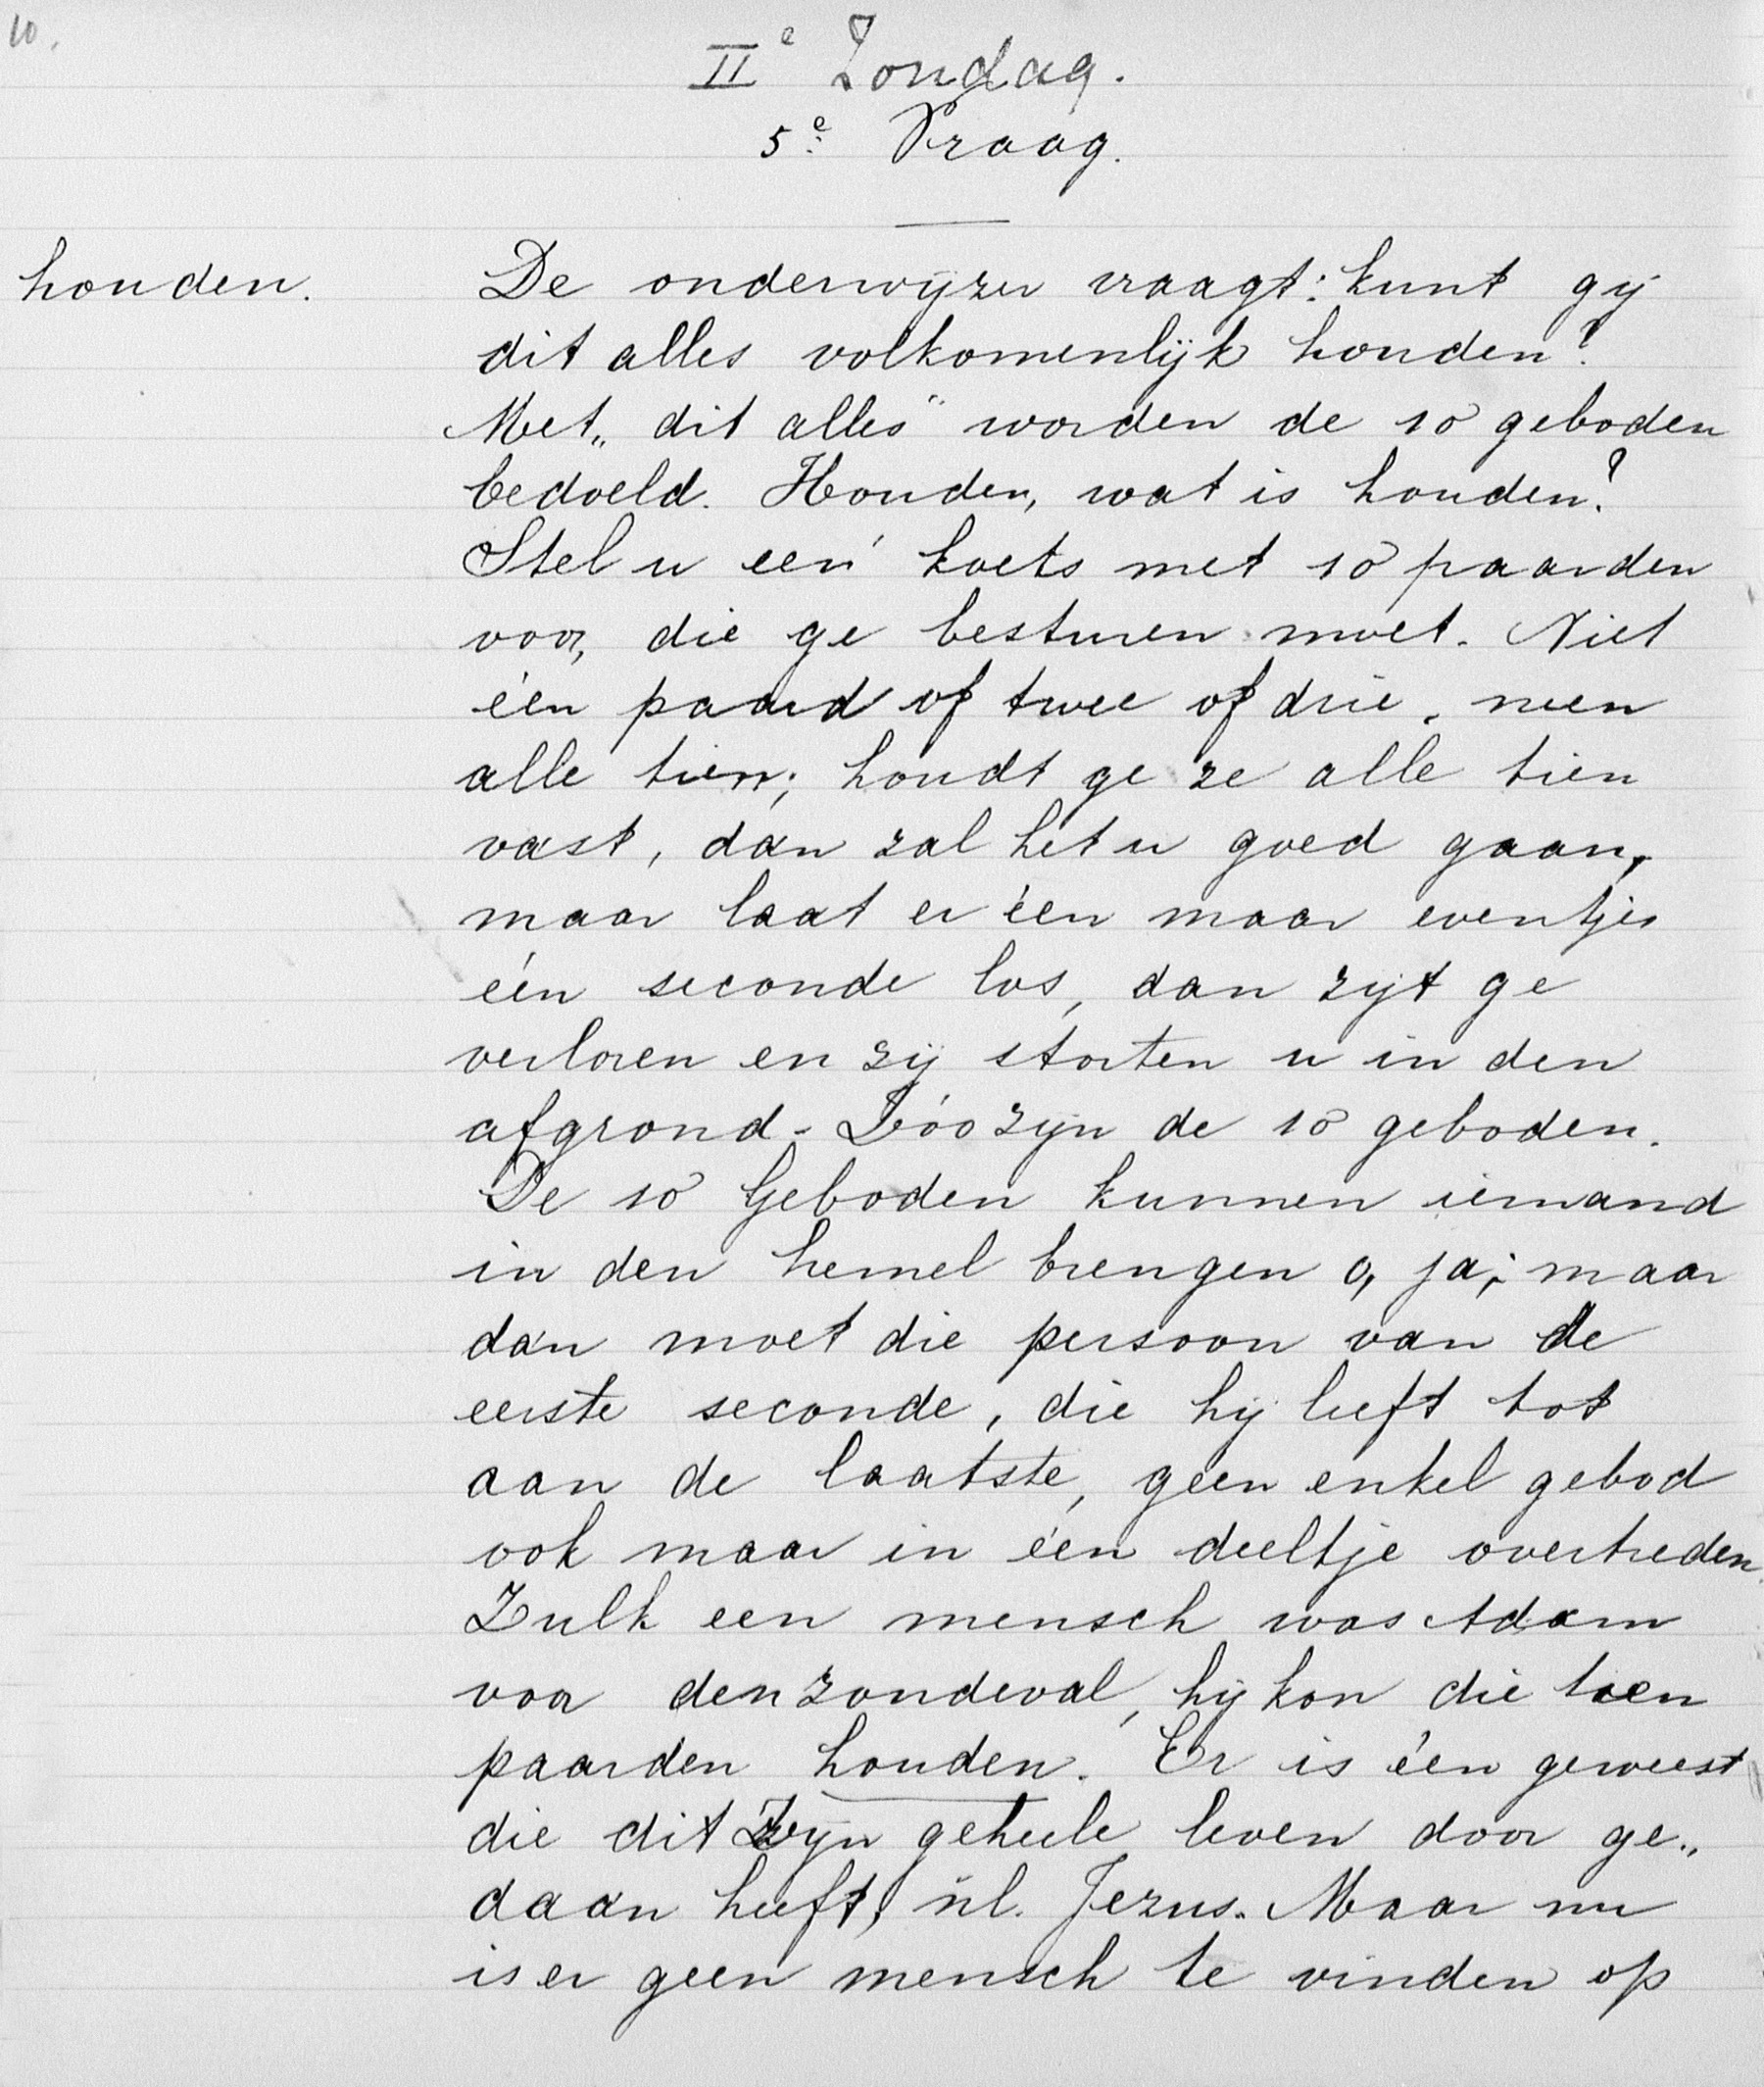 10.
IIe Zondag.
5e Vraag.
houden.
De onderwijzer vraagt: kunt gij
dit alles volkomenlijk houden?
Met „dit alles" worden de 10 geboden
bedoeld. Houden, wat is houden?
Stel u een koets met 10 paarden
voor, die ge besturen moet. Niet
één paard of twee of drie, neen
alle tien; houdt ge ze alle tien
vast, dan zal het u goed gaan,
maar laat er één maar eventjes
één seconde los, dan zijt ge
verloren en zij storten u in den
afgrond. Zóó zijn de 10 geboden.
De 10 Geboden kunnen iemand
in den hemel brengen o, ja; maar
dan moet die persoon van de
eerste seconde, die hij leeft tot
aan de laatste, geen enkel gebod
ook maar in één deeltje overtreden.
Zulk een mensch was Adam
voor den zondeval, hij kon die tien
paarden houden. Er is één geweest
die dit Zijn geheele leven door ge„
daan heeft, nl. Jezus. Maar nu
is er geen mensch te vinden op